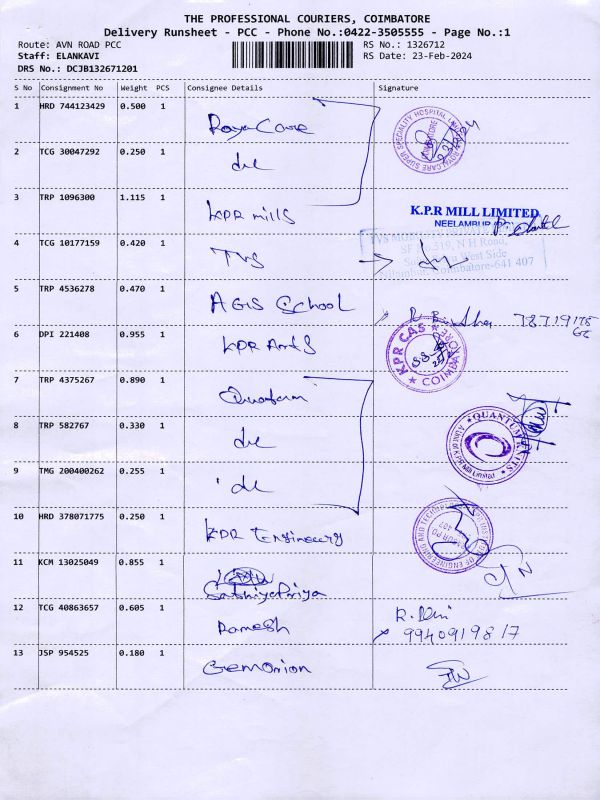 THE PROFESSIONAL COURIERS, COIMBATORE
Delivery Runsheet - PCC - Phone No.:0422-3505555 - Page No.:1
Route: AVN ROAD PCC RS No.: 1326712
Staff: ELANKAVI RS Date: 23-Feb-2024
DRS No.: DCJB132671201
S No Consignment No Weight PCS Consignee Details Signature
1 HRD 744123429 0.500 1 Roya Care
2 TCG 30047292 0.250 1
3 TRP 1096300 1.115 1 KPR mills K.P.R MILL LIMITED
NEELAMBUR
4 TCG 10177159 0.420 1 TVS
SF No.519, N H Road,
West Side
Coimbatore-641 407
5 TRP 4536278 0.470 1 AGIS School
6 DPI 221408 0.955 1 KPR Arts KPR CAS COIMBATORE
7 TRP 4375267 0.890 1
8 TRP 582767 0.330 1 QUANTUM KNITS
9 TMG 200400262 0.255 1
10 HRD 378071775 0.250 1 KPR Engineering
11 KCM 13025049 0.855 1 SathiyaPriya
12 TCG 40863657 0.605 1 Ramesh
9940919817
13 JSP 954525 0.180 1 Gemorion